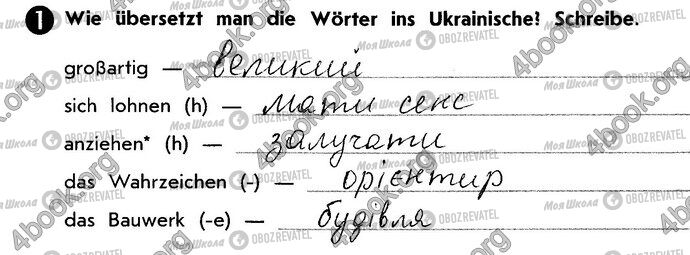 1 Wie übersetzt man die Wörter ins Ukrainische? Schreibe.
großartig — великий
sich lohnen (h) — мати секс
anziehen* (h) — залучати
das Wahrzeichen (-) — орієнтир
das Bauwerk (-e) — будівля
Моя Школа OBOZREVATEL
4book.org